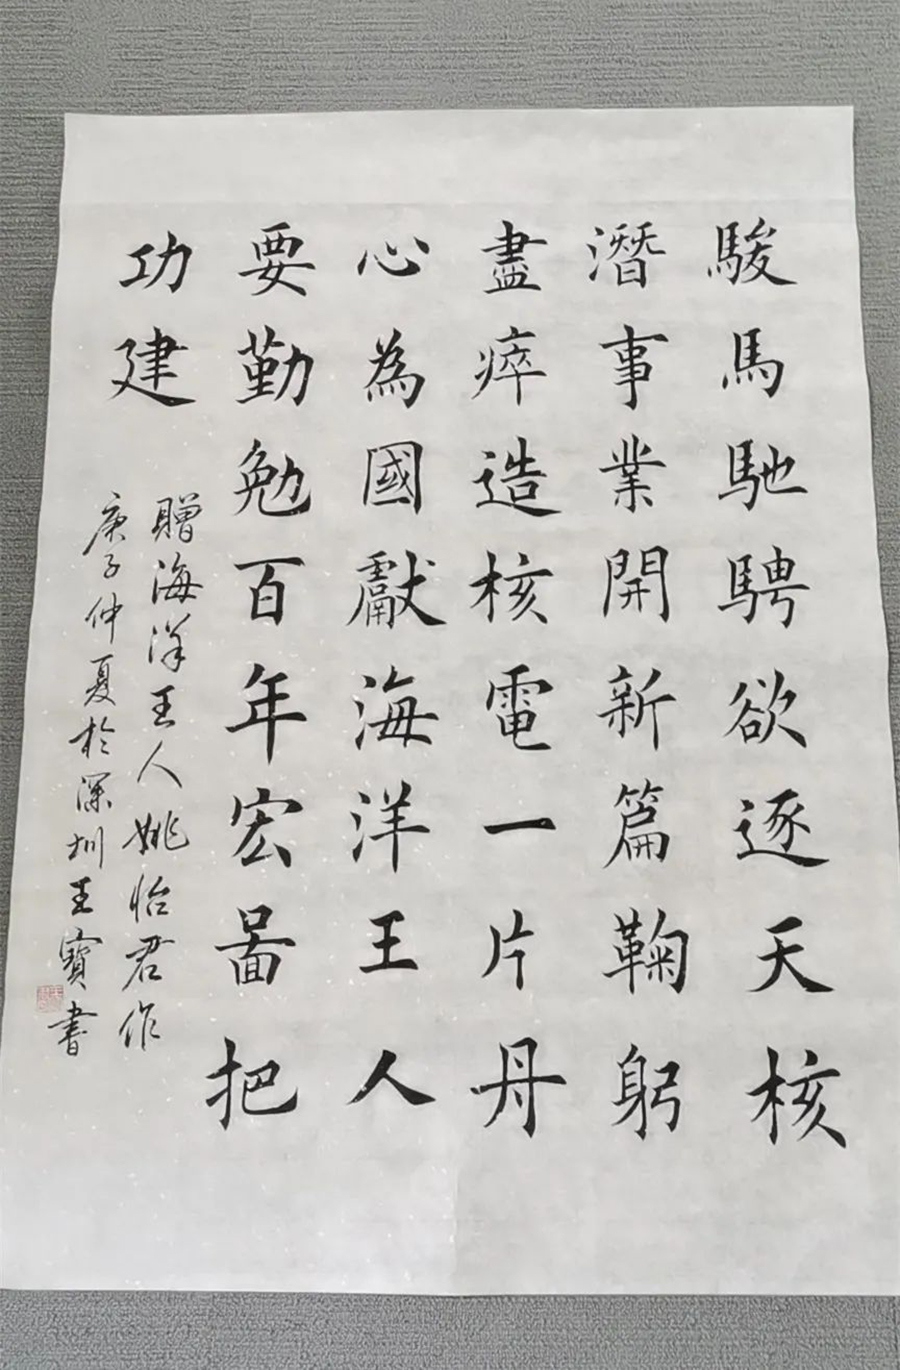 駿馬馳騁欲逐天核
潛事業開新篇鞠躬
盡瘁造核電一片丹
心為國獻海洋王人
要勤勉百年宏啚把
功建
贈海洋王人姚怡君作
庚子仲夏於深圳王寶書